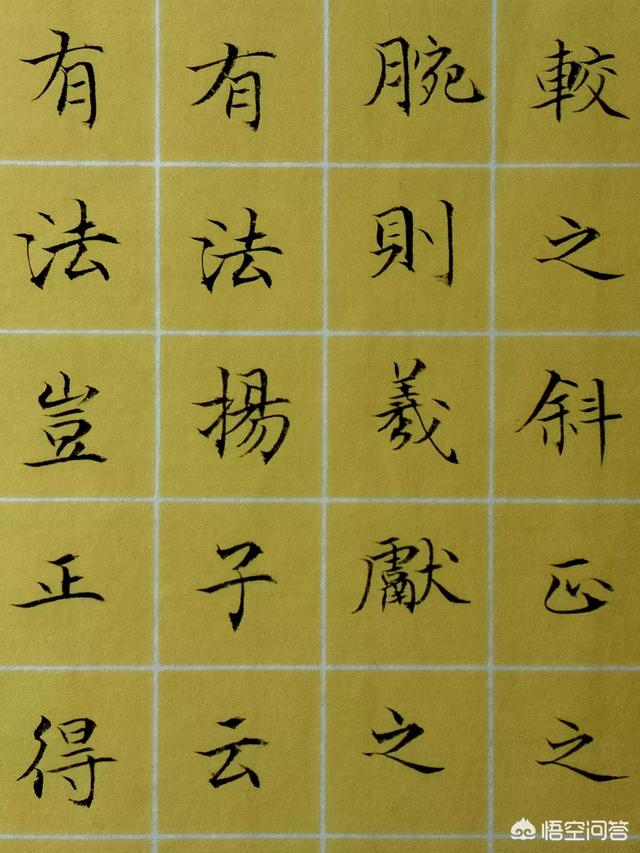 較之斜正之
腕則羲獻之
有法揚子云
有法豈正得
悟空问答